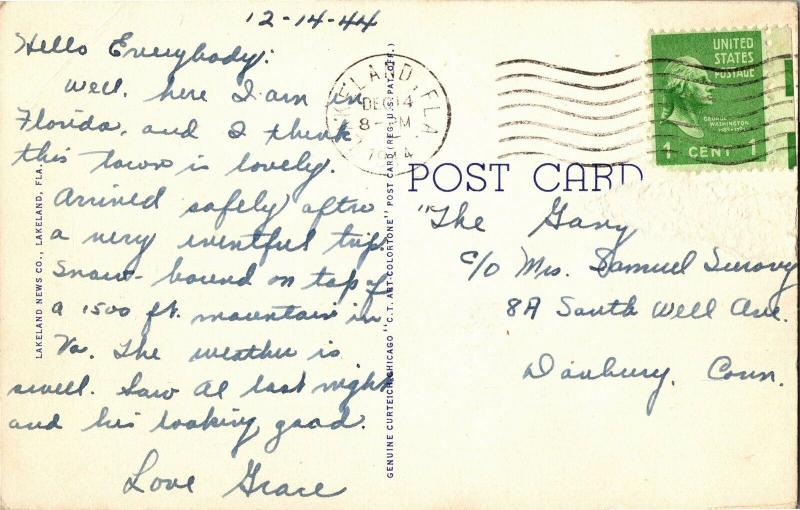 12-14-44
Hello Everybody:
Well, here I am in
Florida, and I think
this town is lovely.
Arrived safely after
a very eventful trip.
Snow-bound on top of
a 1500 ft. mountain in
Va. The weather is
swell. Saw Al last night
and his looking good.
Love Grace
LAKELAND NEWS CO., LAKELAND, FLA.
GENUINE CURTEICH-CHICAGO "C.T. ART-COLORTONE" POST CARD (REG. U.S. PAT. OFF.)
LAKELAND, FLA.
DEC 14
8-PM
1944
UNITED
STATES
POSTAGE
GEORGE
WASHINGTON
1789-1797
1 CENT 1
POST CARD
"The Gang
c/o Mrs. Samuel
8A South Well Ave.
Danbury, Conn.